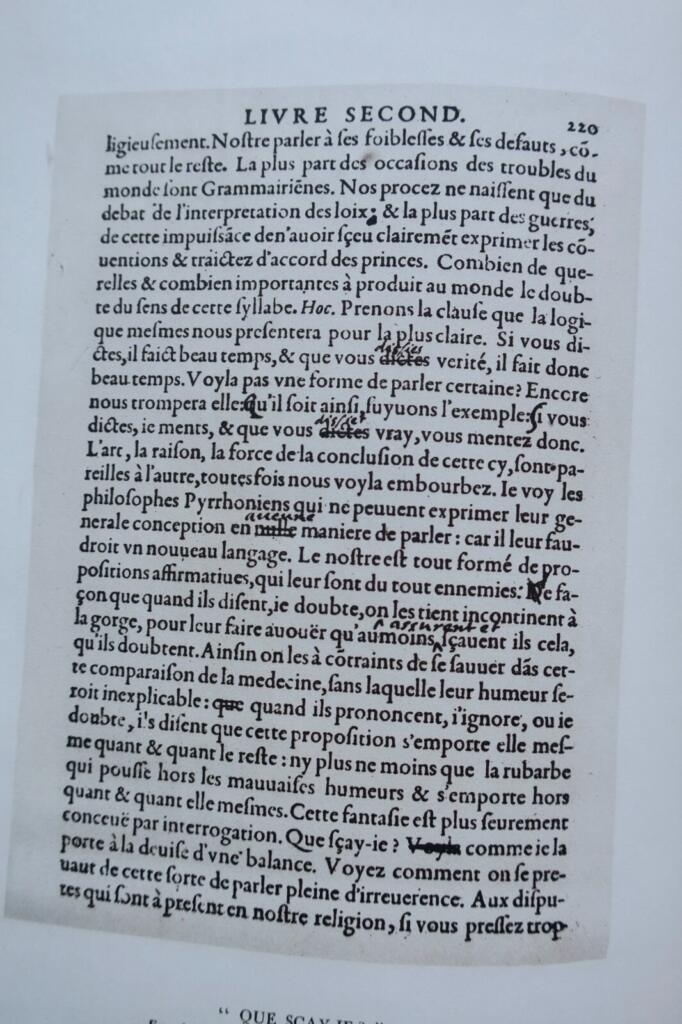 LIVRE SECOND.
220
ligieuſement. Noſtre parler à ſes foibleſſes & ſes defauts, cō-
me tout le reſte. La plus part des occaſions des troubles du
monde ſont Grammairiēnes. Nos procez ne naiſſent que du
debat de l'interpretation des loix; & la plus part des guerres,
de cette impuiſsāce den'auoir ſçeu clairemēt exprimer les cō-
uentions & traictez d'accord des princes. Combien de que-
relles & combien importantes à produit au monde le doub-
te du ſens de cette ſyllabe. Hoc. Prenons la clauſe que la logi-
que meſmes nous preſentera pour la plus claire. Si vous di-
disies
ctes, il faict beau temps, & que vous dictes verité, il fait donc
beau temps. Voyla pas vne forme de parler certaine? Encore
nous trompera elle: Qu'il ſoit ainſi, ſuyuons l'exemple: ſi vous
disies
dictes, ie ments, & que vous dictes vray, vous mentez donc.
L'art, la raiſon, la force de la concluſion de cette cy, ſont pa-
reilles à l'autre, toutesfois nous voyla embourbez. Ie voy les
philoſophes Pyrrhoniens qui ne peuuent exprimer leur ge-
aucune
nerale conception en nulle maniere de parler: car il leur fau-
droit vn nouueau langage. Le noſtre eſt tout formé de pro-
poſitions affirmatiues, qui leur ſont du tout ennemies: De fa-
çon que quand ils diſent, ie doubte, on les tient incontinent à
assurent et
la gorge, pour leur faire auouër qu'aumoins, ſçauent ils cela,
qu'ils doubtent. Ainſin on les à cōtraints de ſe ſauuer dās cet-
te comparaiſon de la medecine, ſans laquelle leur humeur ſe-
roit inexplicable: que quand ils prononcent, i'ignore, ou ie
doubte, i's diſent que cette propoſition s'emporte elle meſ-
me quant & quant le reſte: ny plus ne moins que la rubarbe
qui pouſſe hors les mauuaiſes humeurs & s'emporte hors
quant & quant elle meſmes. Cette fantaſie eſt plus ſeurement
conceuë par interrogation. Que ſçay-ie? Voyla comme ie la
porte à la deuiſe d'vne balance. Voyez comment on ſe pre-
uaut de cette ſorte de parler pleine d'irreuerence. Aux diſpu-
tes qui ſont à preſent en noſtre religion, ſi vous preſſez trop
" QUE SCAY-JE? "